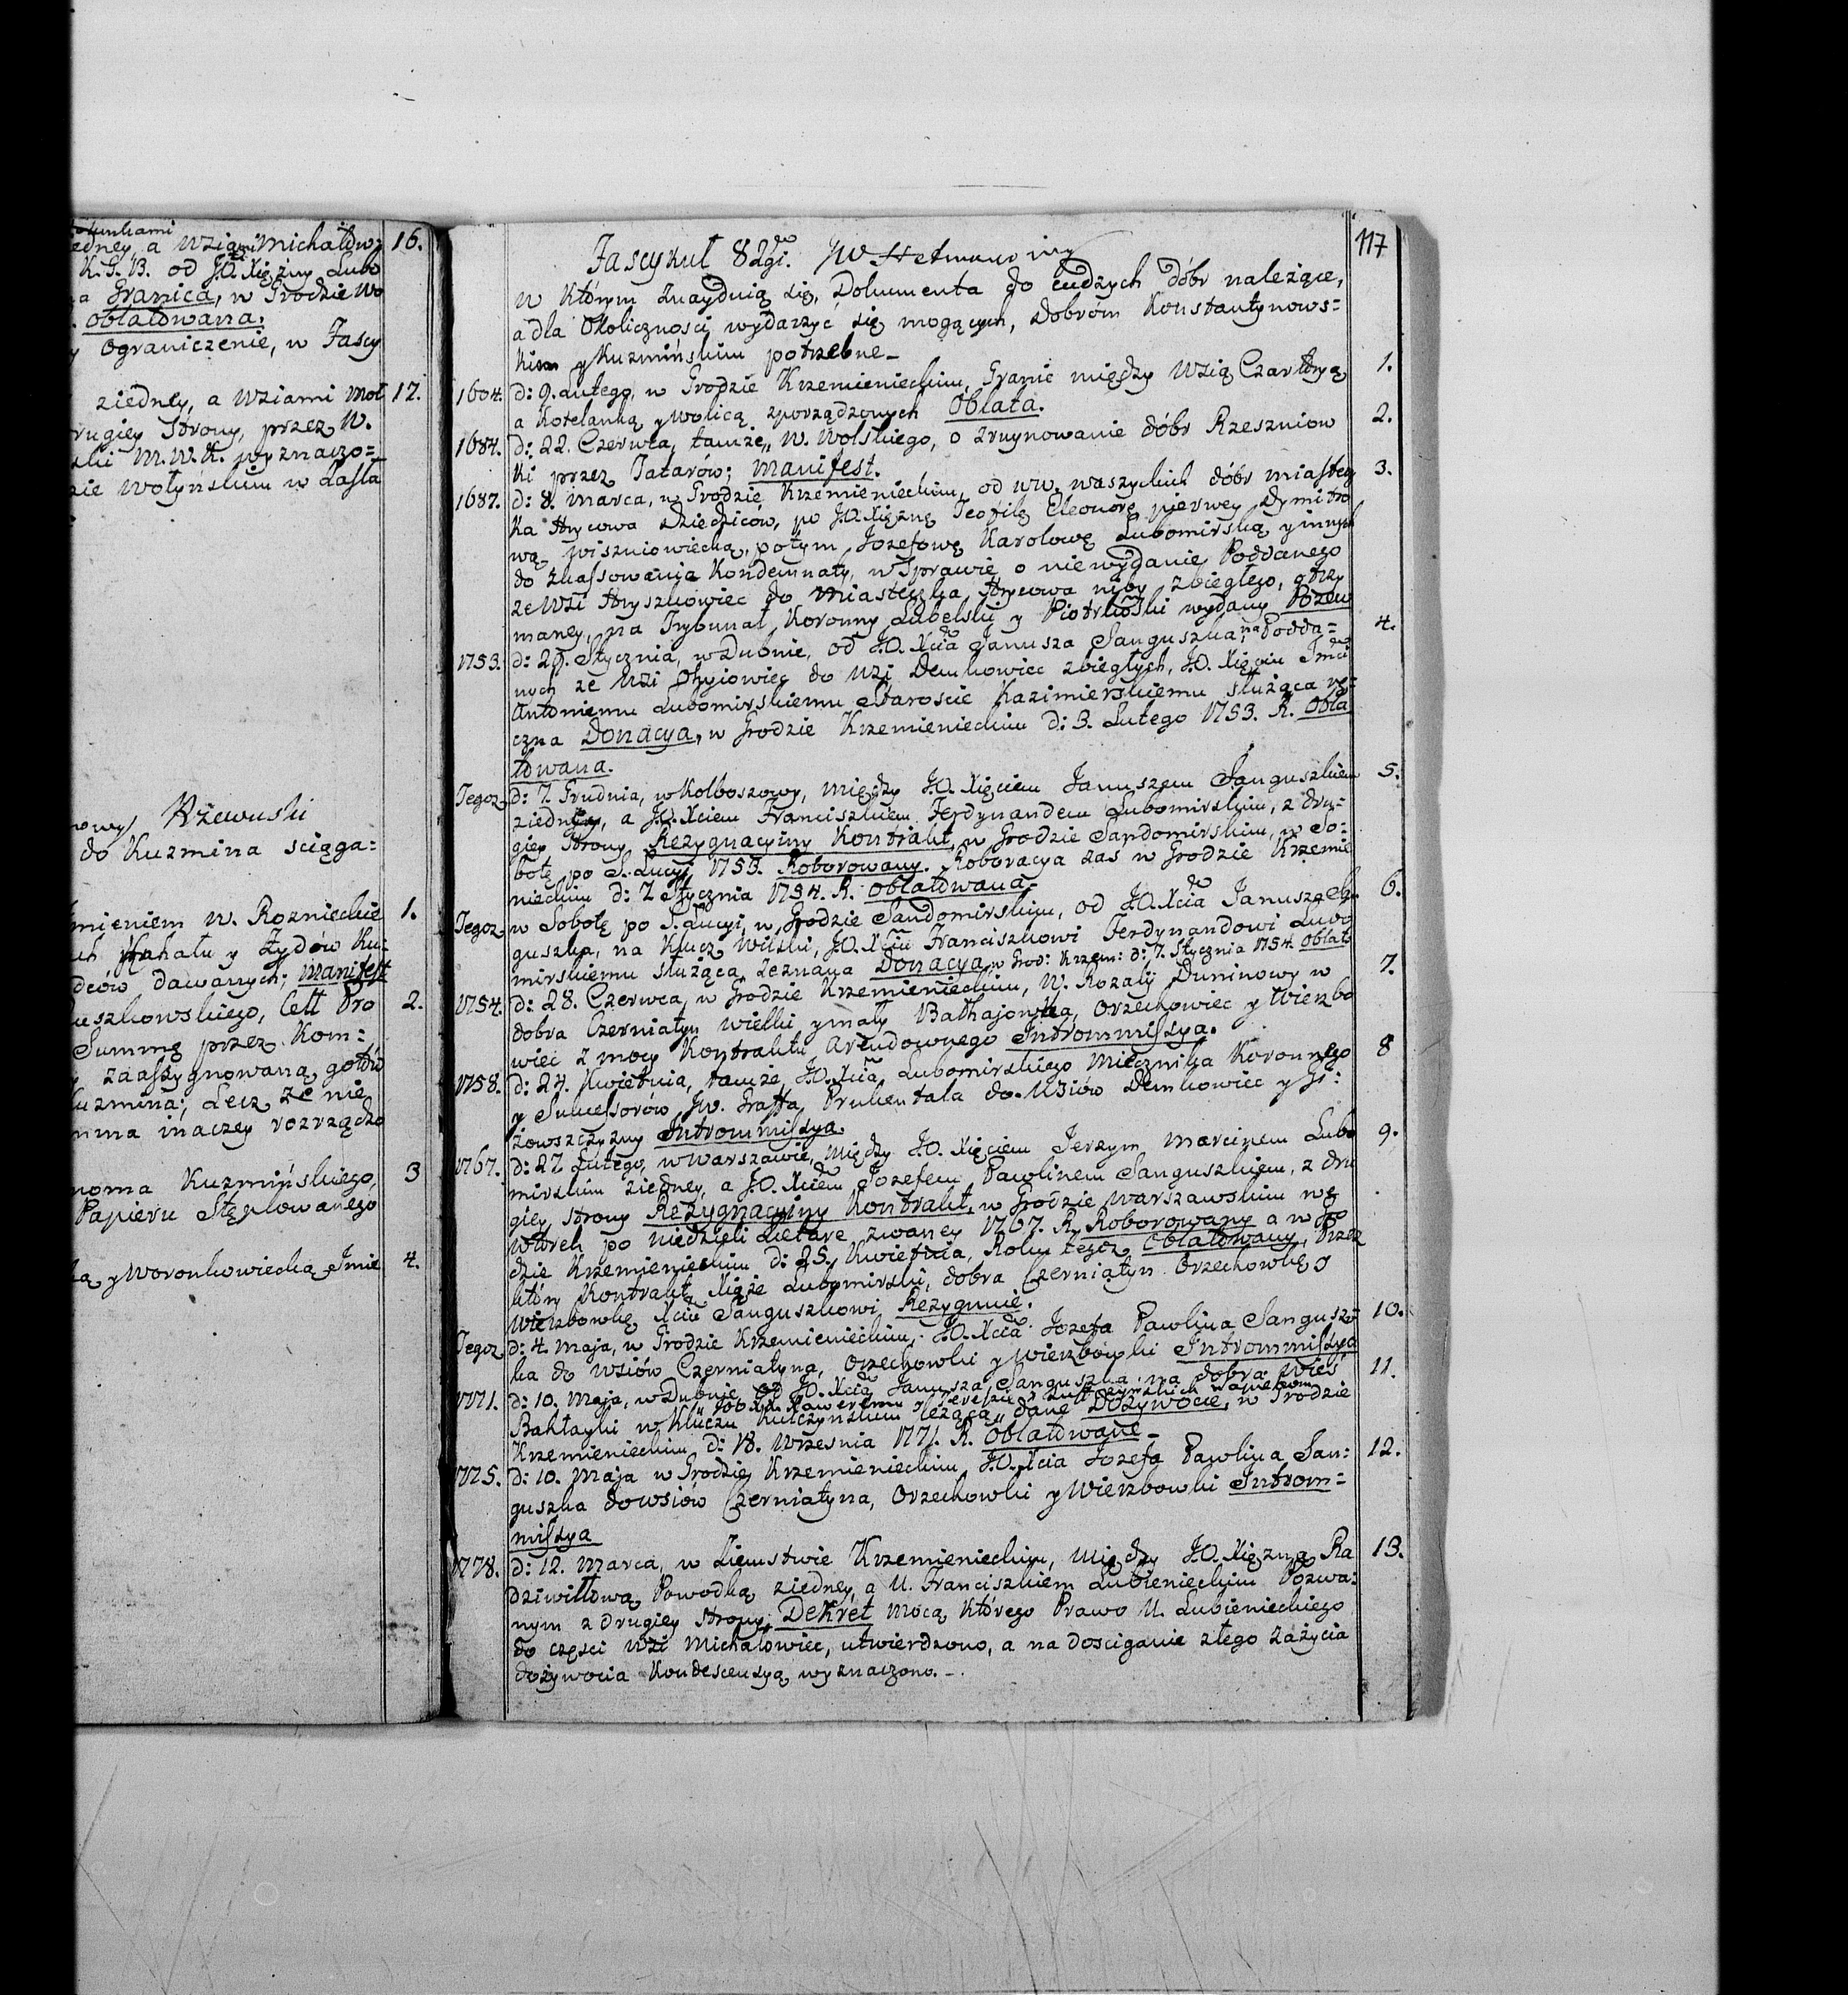 unkami
iedney, a Wsią Michałow 16.
K. G. B. od J.O. Xiężny Lubo
a Granica, w Grodzie Wo
oblatowana.
y ograniczenie, w Fascy
ziedney, a Wsiami Moł 17.
rugiey Strony, przez W.
ski M. W. K. wyznaczo=
zie Wołyńskim w Lasła
nowy Rzewuski
do Kuzmina sciąga=
mieniem W. Roznieckie 1.
ch Kahału y Żydów Ku=
dców dawanych; Manifest
uszkowskiego, Cett Pro 2.
Summę przez Kom=
zaassygnowaną, gotów
Kuzmina; Lecz że nie
mma inaczey rozrządzo
noma Kuzmińskiego, 3
Papieru Stęplowanego
ą y Woronkowiecką Imie 4.
117
Fascykuł 82gi. JW Hetmanowiny
w którym znayduią się, Dokumenta do cudzych dóbr należące,
a dla Okoliczności wydarzyć się mogących, Dobróm Konstantynows=
kim y Kuzmińskim potrzebne_
1604. d: 9. Lutego, w Grodzie Krzemienieckim, Granic między Wsią Czartoryą 1.
a Kotelanką y Wolicą sporządzonych Oblata.
1684. d: 22. Czerwca, tamże, W. Wolskiego, o zruynowanie dóbr Rzeszniow 2.
ki przez Tatarów; Manifest.
1687. d: 8. Marca, w Grodzie Krzemienieckim, od WW. Waszyckich dóbr miastecz 3.
ka Hrycowa Dziedziców, po J.O. Xiężnę Teofilę Eleonorę pierwey Dymitro
wą Wiszniowiecką, potym Jozefowę Karolowę Lubomirską y innych
do zkassowania Kondemnaty, w Sprawie o niewydanie Poddanego
ze Wsi Hryszkowiec do Miasteczka Hrycowa niby zbiegłego, otrzy
maney, na Trybunał Koronny Lubelski y Piotrkowski wydany Pozew
1753. d: 29. Stycznia, w Dubnie, od J.O. Xcia Janusza Sanguszka, na Podda= 4.
nych ze Wsi Ohyiowiec do Wsi Demkowiec zbiegłych, J.O. Xięciu Jmci
Antoniemu Lubomirskiemu Staroscie Kazimierskiemu służąca rę=
czna Donacya, w Grodzie Krzemienieckim d: 3. Lutego 1753. R. Obla
towana.
Tegoz d: 7. Grudnia, w Kolboszowy, między J.O. Xięciem Januszem Sanguszkiem 5.
ziedney, a J.O. Xciem Franciszkiem Ferdynandem Lubomirskim, z dru=
giey Strony Rezygnacyiny Kontrakt, w Grodzie Sandomirskim, w So=
botę po S. Lucyi 1753. Roborowany. Roboracya zas w Grodzie Krzemie
nieckim d: 7 Stycznia 1754. R. oblatowana_
Tegoz w Sobotę po S. Lucyi, w Grodzie Sandomirskim, od J.O. Xcia Janusza San 6.
guszka, na Klucz Wilski, J.O. Xciu Franciszkowi Ferdynandowi Lubo
mirskiemu służąca zeznana Donacya, w Grod: Krzem: d: 7. Stycznia 1754. Oblato
1754. d: 28. Czerwca, w Grodzie Krzemienieckim, W. Rozalij Duninowy w 7.
dobra Czerniatyn wielki y mały Bałhajowka, Orzechowiec y Wierzbo
wiec z mocy Kontraktu Arendownego Intrommissya.
1758. d: 24. Kwietnia, tamże, J.O. Xcia Lubomirskiego Miecznika Koronnego 8
y Sukcessorów JW. Graffa Prebentala do Wsiów Demkowiec y Gi=
żowszczyzny Intrommissya.
1767. d: 27 Lutego, w Warszawie, między J.O. Xięciem Jerzym Marcinem Lubo 9.
mirskim ziedney, a J.O. Xciem Jozefem Pawlinem Sanguszkiem, z dru
giey strony Rezygnacyiny Kontrakt, w Grodzie Warszawskim we
Wtorek po Niedzieli Lætare zwaney 1767. R. Roborowany a w Gro
dzie Krzemienieckim d: 25. Kwietnia, Roku tegoz Oblatowany, Przez
który Kontrakt Xiąże Lubomirski, dobra Czerniatyn Orzechowkę y
Wierzbowkę Xciu Sanguszkowi Rezygnuie.
Tegoz d: 4. Maja, w Grodzie Krzemienieckim, J.O. Xcia Jozefa Pawlina Sangusz= 10.
ka do Wsiów Czerniatyna, Orzechowki y Wierzbowki Intrommissya
1771. d: 10. Maja, w Dubnie od J.O. Xcia Janusza Sanguszka na dobra Wieś 11.
Bahłayki w Kluczu Kulczynskim leżącą, dane Dożywocie, w Grodzie
Krzemienieckim d: 18. Wrzesnia 1771. R. oblatowane_
1775. d: 10. Maja w Grodzie Krzemienieckim J.O. Xcia Jozefa Pawlina San= 12.
guszka do Wsiów Czerniatyna, Orzechowki y Wierzbowki Introm=
missya
1778. d: 12. Marca, w Ziemstwie Krzemienieckim, między J.O. Xiężną Ra 13.
dziwiłłową Powodką ziedney, a U. Franciszkiem Lubienieckim Pozwa=
nym z drugiey strony, Dekret mocą którego Prawo U. Lubienieckiego
do części Wsi Michałowiec, utwierdzono, a na dosciganie złego zażycia
dożywocia Kondescensyą wyznaczono._